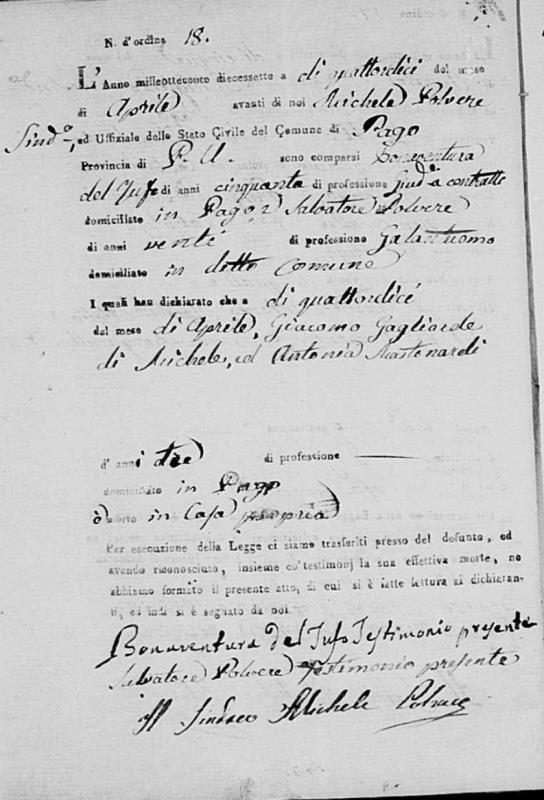 N. d'ordine 18.
L'Anno milleottocento diecessette a di quattordici del mese
di Aprile avanti di noi Michele Polvere
Sind.o ed Uffiziale dello Stato Civile del Comune di Pago
Provincia di P. U. sono comparsi Bonaventura
del Tufo di anni cinquanta di professione Giud.e a contratti
domiciliato in Pago e Salvatore Polvere
di anni venti di professione Galantuomo
domiciliato in detto Comune
I quali han dichiarato che a di quattordici
del mese di Aprile, Giacomo Gagliarde
di Michele, ed Antonia Mastonardi
d' anni tre di professione
domiciliato in Pago
è morto in Casa propria
Per esecuzione della Legge ci siamo trasferiti presso del defunto, ed
avendo riconosciuto, insieme co' testimonj la sua effettiva morte, ne
abbiamo formato il presente atto, di cui si è fatte lettura ai dichiaran-
ti, ed indi si è segnato da noi
Bonaventura del Tufo Testimonio presente
Salvatore Polvere Testimonio presente
Il Sindaco Michele Polvere